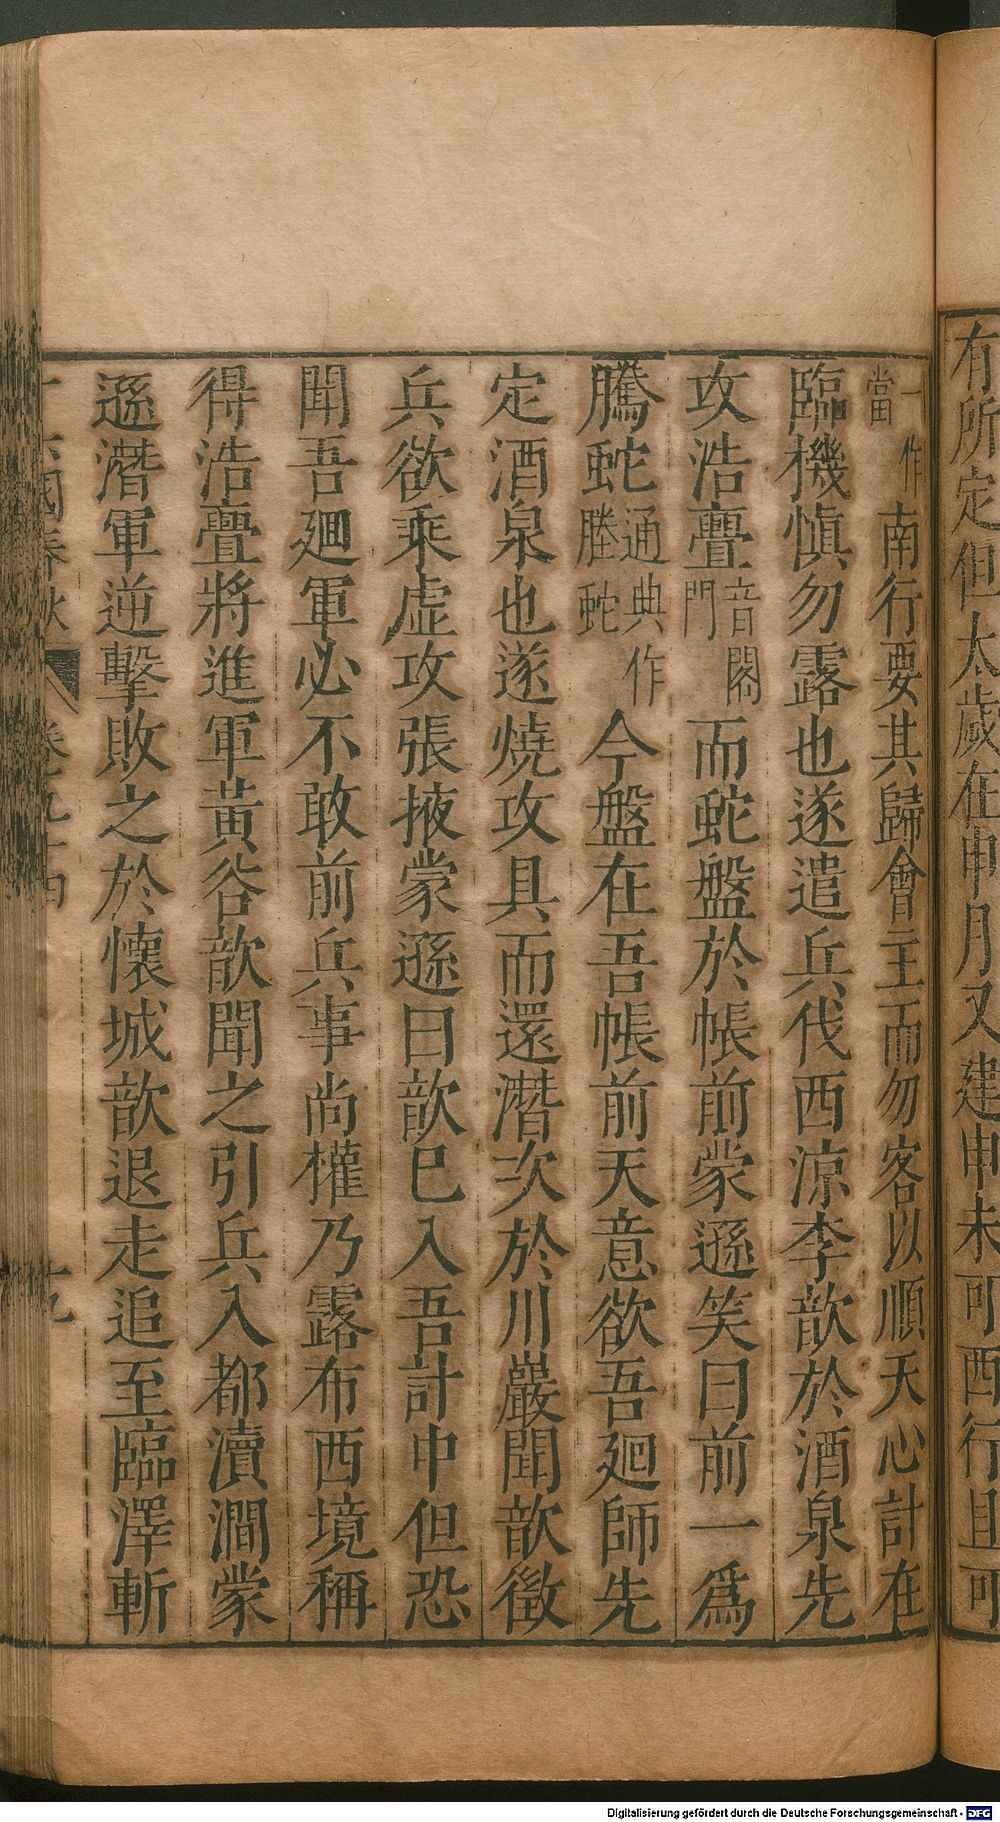 有所定但太歲在申月又建申未可西行且可
一作當南行要其歸會主而勿客以順天心計在
臨機慎勿露也遂遣兵伐西涼李歆於酒泉先
攻浩亹音閣門而蛇盤於帳前蒙遜笑曰前一爲
騰蛇通典作塍蛇今盤在吾帳前天意欲吾廻師先
定酒泉也遂燒攻具而還潛次於川巖聞歆徵
兵欲乘虛攻張掖蒙遜曰歆巳入吾計中但恐
聞吾廻軍必不敢前兵事尚權乃露布西境稱
得浩亹將進軍黃谷歆聞之引兵入都瀆澗蒙
遜潛軍逆擊敗之於懷城歆退走追至臨澤斬
國春秋 卷九十四 十九
Digitalisierung gefördert durch die Deutsche Forschungsgemeinschaft - DFG